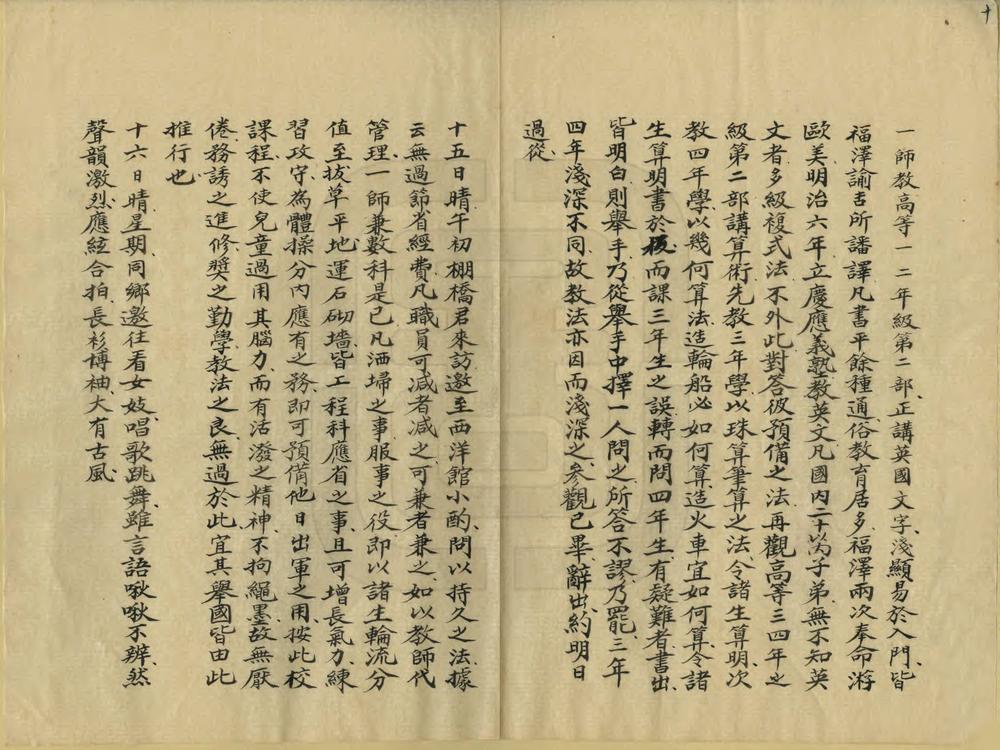 十
一師教高等一二年級第二部、正講英國文字、淺顯易於入門、皆
福澤諭吉所譒譯、凡書平餘種、通俗教育居多、福澤兩次奉命游
歐美、明治六年立慶應義塾、教英文、凡國内二十以內子弟、無不知英
文者、多級複式法、不外此對答彼預備之法、再觀高等三四年之
級第二部講算術、先教三年學以珠算筆算之法、令諸生算明、次
教四年學以幾何算法、造輪船必如何算、造火車宜如何算、令諸
生算明書於板、而課三年生之誤、轉而問四年生、有疑難者書出、
皆明白則舉手、乃從舉手中擇一人問之、所答不謬乃罷、三年
四年淺深不同、故教法亦因而淺深之、參觀已畢、辭出、約明日
過從、
十五日晴、午初棚橋君來訪、邀至西洋館小酌、問以持久之法、據
云無過節省經費、凡職員可減者減之、可兼者兼之、如以教師代
管理、一師兼數科是已、凡洒埽之事、服事之役、即以諸生輪流分
值、至拔草平地、運石砌墻、皆工程科應省之事、且可增長氣力、練
習攻守、為體操分內應有之務、即可預備他日出軍之用、按此校
課程、不使兒童過用其腦力、而有活潑之精神、不拘繩墨、故無厭
倦、務誘之進修、獎之勤學、教法之良、無過於此、宜其舉國皆由此
推行也
十六日晴、星期、同鄉邀往看女妓、唱歌跳舞、雖言語啾啾不辨、然
聲韻激烈、應絃合拍、長衫博袖、大有古風、